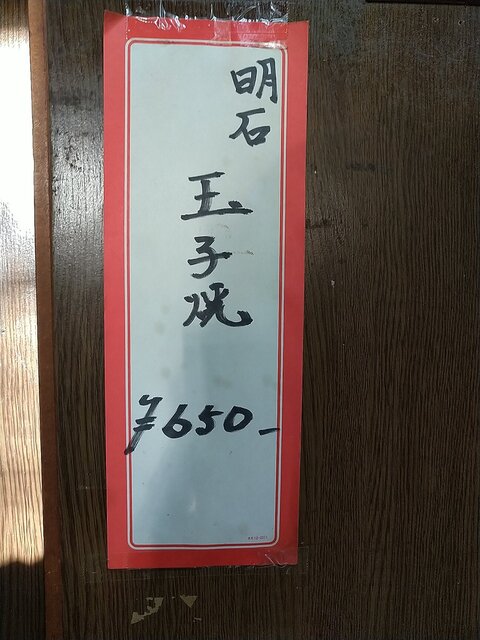 明石
玉子焼
¥650-